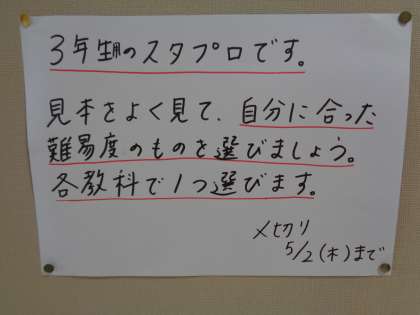 3年生用のスタプロです。
見本をよく見て、自分に合った
難易度のものを選びましょう。
各教科で1つ選びます。
〆切り
5/2(木)まで